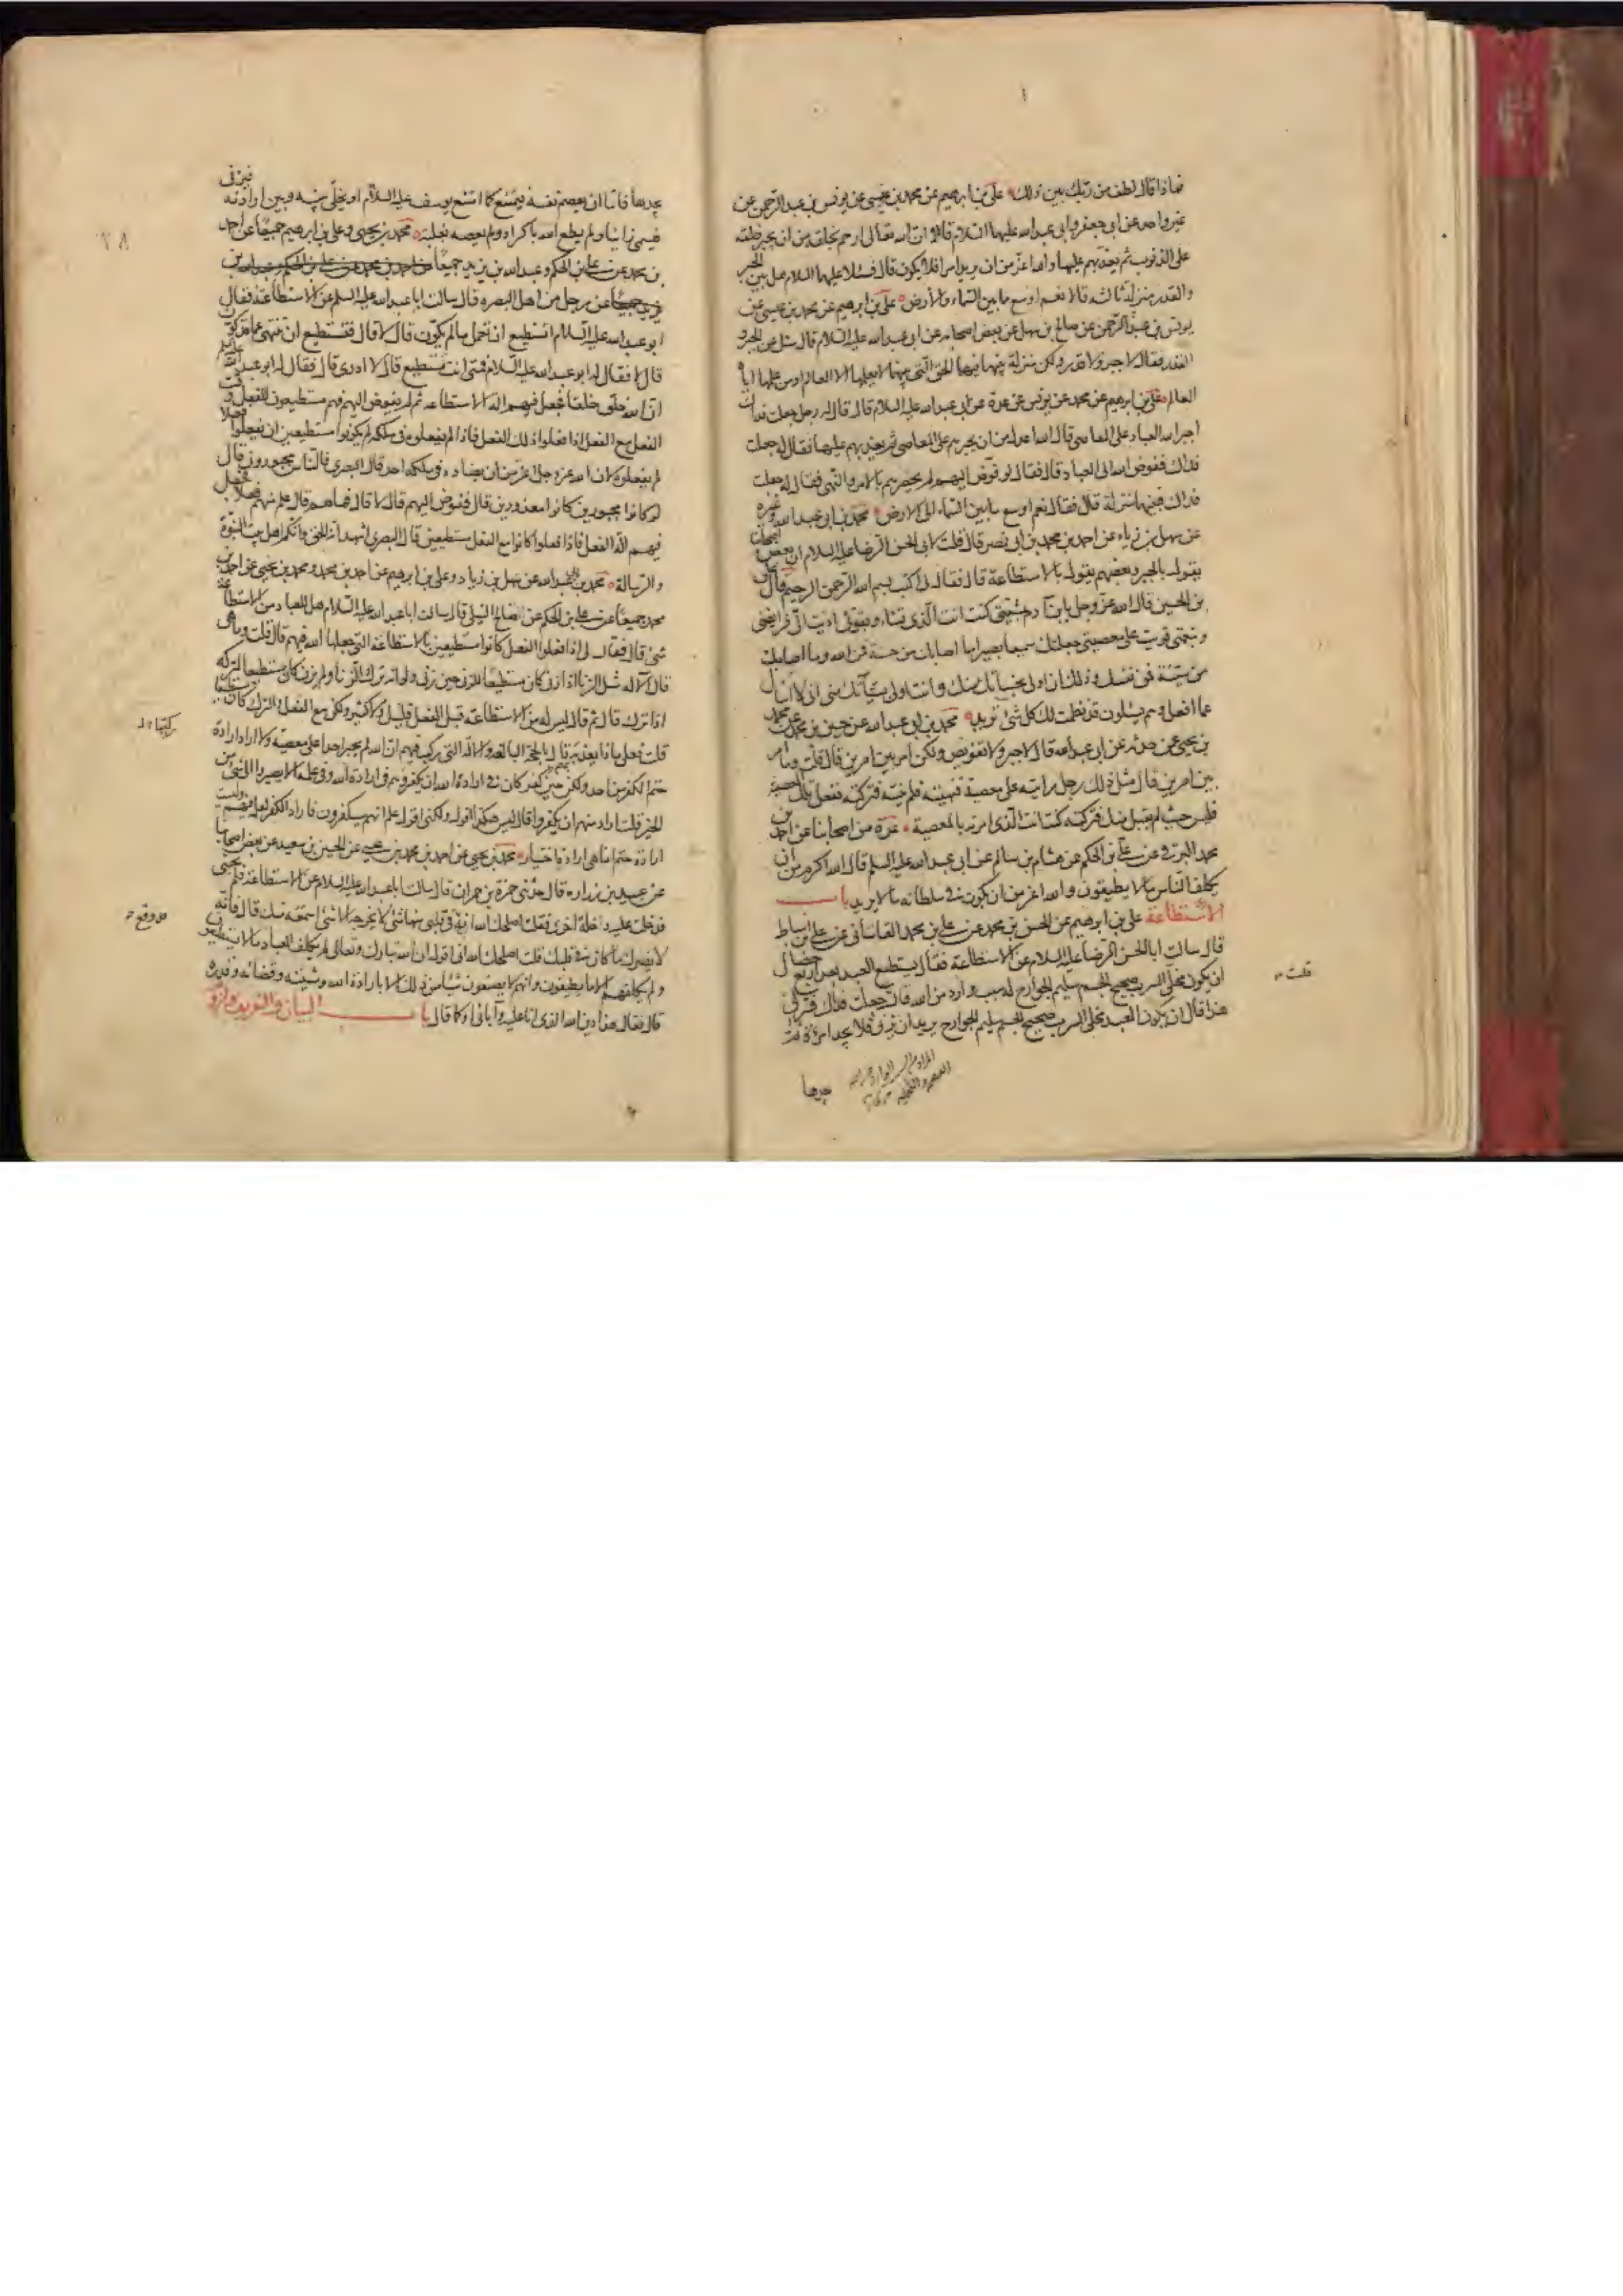 فماذا قال لطف من ربك بين ذلك علي بن ابرهيم عن محمد بن عيسى عن يونس بن عبد الرحمن عن
غير واحد عن ابي جعفر وابي عبد الله عليهما السلام قالا ان الله تعالى ارحم بخلقه من ان يجبر خلقه
على الذنوب ثم يعذبهم عليها والله اعز من ان يريد امرا فلا يكون قال فسئلا عليهما السلام هل بين الجبر
والقدر منزلة ثالثه قالا نعم اوسع ما بين السماء والارض علي بن ابرهيم عن محمد بن عيسى عن
يونس بن عبد الرحمن عن صالح بن سهل عن بعض اصحابه عن ابي عبد الله عليه السلام قال سئل عن الجبر و
القدر فقال لا جبر ولا قدر ولكن منزلة بينهما فيها الحق التي بينهما لا يعلمها الا العالم او من علمها اياه
العالم علي بن ابرهيم عن محمد عن يونس عن عدة عن ابي عبد الله عليه السلام قال قال له رجل جعلت فداك
اجبر الله العباد على المعاصي قال الله اعدل من ان يجبرهم على المعاصي ثم يعذبهم عليها فقال له جعلت
فداك ففوض الله الى العباد قال فقال لو فوض اليهم لم يحصرهم بالامر والنهي فقال له جعلت
فداك فبينهما منزلة قال فقال نعم اوسع ما بين السماء الى الارض محمد بن ابي عبد الله وغيره
عن سهل بن زياد عن احمد بن محمد بن ابي نصر قال قلت لابي الحسن الرضا عليه السلام ان بعض اصحابنا
يقول بالجبر وبعضهم يقول بالاستطاعة قال فقال لي اكتب بسم الله الرحمن الرحيم قال علي
بن الحسين قال الله عز وجل يابن آدم بمشيتي كنت انت الذي تشاء وبقوتي اديت الي فرايضي
وبنعمتي قويت على معصيتي جعلتك سميعا بصيرا ما اصابك من حسنة فمن الله وما اصابك
من سيئة فمن نفسك وذلك اني اولى بحسناتك منك وانت اولى بسيئاتك مني اني لا اسأل
عما افعل وهم يسئلون قد نظمت لك كل شئ تريد محمد بن ابي عبد الله عن حسين بن محمد عن محمد
بن يحيى عمن حدثه عن ابي عبد الله قال لا جبر ولا تفويض ولكن امر بين امرين قال قلت وما امر
بين امرين قال مثل ذلك رجل رايته على معصية فنهيته فلم ينته فتركته ففعل تلك المعصية
فليس حيث لم يقبل منك فتركته كنت انت الذي امرته بالمعصية عدة من اصحابنا عن احمد بن
محمد البرقي عن علي بن الحكم عن هشام بن سالم عن ابي عبد الله عليه السلم قال الله اكرم من ان
يكلف الناس ما لا يطيقون والله اعز من ان يكون في سلطانه ما لا يريد باب
الاستطاعة علي بن ابرهيم عن الحسن بن محمد عن علي بن محمد القاساني عن علي بن اسباط
قال سالت ابا الحسن الرضا عليه السلام عن الاستطاعة فقال يستطيع العبد بعد اربع خصال
ان يكون مخلى السرب صحيح الجسم سليم الجوارح له سبب وارد من الله قال جعلت فداك فسر لي
هذا قال ان يكون العبد مخلى السرب صحيح الجسم سليم الجوارح يريد ان يزني فلا يجد امرأة ثم
يجدها
قلت
يجدها فاما ان يعصم نفسه فيمتنع كما امتنع يوسف عليه السلام او يخلي بينه وبين ارادته فيزني
فيسمى زانيا ولم يطع الله باكراه ولم يعصه بغلبة محمد بن يحيى وعلي بن ابرهيم جميعا عن احمد
بن محمد عن علي بن الحكم وعبد الله بن يزيد جميعا عن احمد بن محمد عن علي بن الحكم وعبد الله بن
يزيد جميعا عن رجل من اهل البصره قال سالت ابا عبد الله عليه السلم عن الاستطاعة فقال
ابو عبد الله عليه السلام اتستطيع ان تعمل ما لم يكون قال لا قال فتستطيع ان تنتهي عما قد كون
قال لا فقال له ابو عبد الله عليه السلام فمتى انت مستطيع قال لا ادري قال فقال له ابو عبد الله عليه السلم
ان الله خلق خلقا فجعل فيهم آلة الاستطاعه ثم لم يفوض اليهم فهم مستطيعون للفعل وقت
الفعل مع الفعل اذا فعلوا ذلك الفعل فاذا لم يفعلوه في ملكه لم يكونوا مستطيعين ان يفعلوا فعلا
لم يفعلوه لان الله عز وجل اعز من ان يضاده في ملكه احد قال البصري فالناس مجبورون قال
لو كانوا مجبورين كانوا معذورين قال ففوض اليهم قال لا قال فما هم قال علم منهم فعلا فجعل
فيهم آلة الفعل فاذا فعلوا كانوا مع الفعل مستطيعين قال البصري اشهد انه الحق وانكم اهل بيت النبوة
والرسالة محمد بن ابي عبد الله عن سهل بن زياد وعلي بن ابرهيم عن احمد بن محمد ومحمد بن يحيى عن احمد بن
محمد جميعا عن علي بن الحكم عن صالح النيلي قال سالت ابا عبد الله عليه السلام هل للعباد من الاستطاعة
شئ قال فقال لي اذا فعلوا الفعل كانوا مستطيعين بالاستطاعة التي جعلها الله فيهم قال قلت وما هي
قال الآلة مثل الزنا اذا زنى كان مستطيعا للزنى حين زنى ولو انه ترك الزنا ولم يزن كان مستطيعا لتركه
اذا ترك قال ثم قال ليس له من الاستطاعة قبل الفعل قليل ولا كثير ولكن مع الفعل والترك كان مستطيعا
قلت فعلى ماذا يعذبه قال بالحجة البالغه والآلة التي ركب فيهم ان الله لم يجبر احدا على معصيته ولا اراد ارادة
حتم الكفر من احد ولكن حين كفر كان في ارادة الله ان يكفر وهم في ارادة الله وفي علمه الا يصيروا الى شئ من
الخير قلت اراد منهم ان يكفروا قال ليس هكذا اقول ولكني اقول علم انهم سيكفرون فاراد الكفر لعلمه فيهم وليست
ارادة حتم انما هي ارادة اختيار محمد بن يحيى عن احمد بن محمد بن عيسى عن الحسين بن سعيد عن بعض اصحابنا
عن عبيد بن زراره قال حدثني حمزة بن حمران قال سالت ابا عبد الله عليه السلام عن الاستطاعة فلم يجبني
فدخلت عليه دخلة اخرى فقلت اصلحك الله انه قد وقع في قلبي منها شئ لا يخرجه الا شئ اسمعه منك قال فانه
لا يضرك ما كان في قلبك قلت اصلحك الله اني اقول ان الله تبارك وتعالى لم يكلف العباد ما لا يستطيعون
ولم يكلفهم الا ما يطيقون وانهم لا يصنعون شيئا من ذلك الا بارادة الله ومشيته وقضائه وقدره
قال فقال هذا دين الله الذي انا عليه وآبائي او كما قال باب البيان والتعريف ولزوم